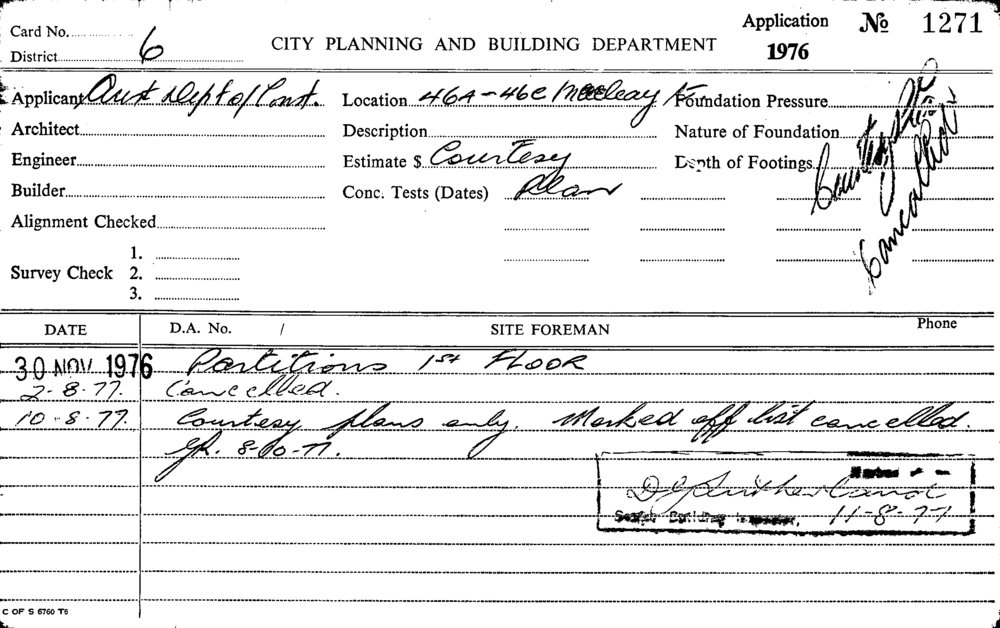 Card No.
Application No 1271
District 6
CITY PLANNING AND BUILDING DEPARTMENT
1976
Applicant Aust Dept of Const. Location 46A-46C Macleay St Foundation Pressure
Architect Description Nature of Foundation
Engineer Estimate $ Courtesy Depth of Footings
Builder Conc. Tests (Dates) Plan
Courtesy
Cancelled
Alignment Checked
1.
Survey Check 2.
3.
DATE D.A. No. / SITE FOREMAN Phone
30 NOV 1976 Partitions 1st FLOOR
2-8-77. Cancelled.
10-8-77. Courtesy plans only. Marked off list cancelled.
8-10-77.
Noted
D Sutherland
Senior Building Inspector. 11-8-77
C OF S 6760 T6